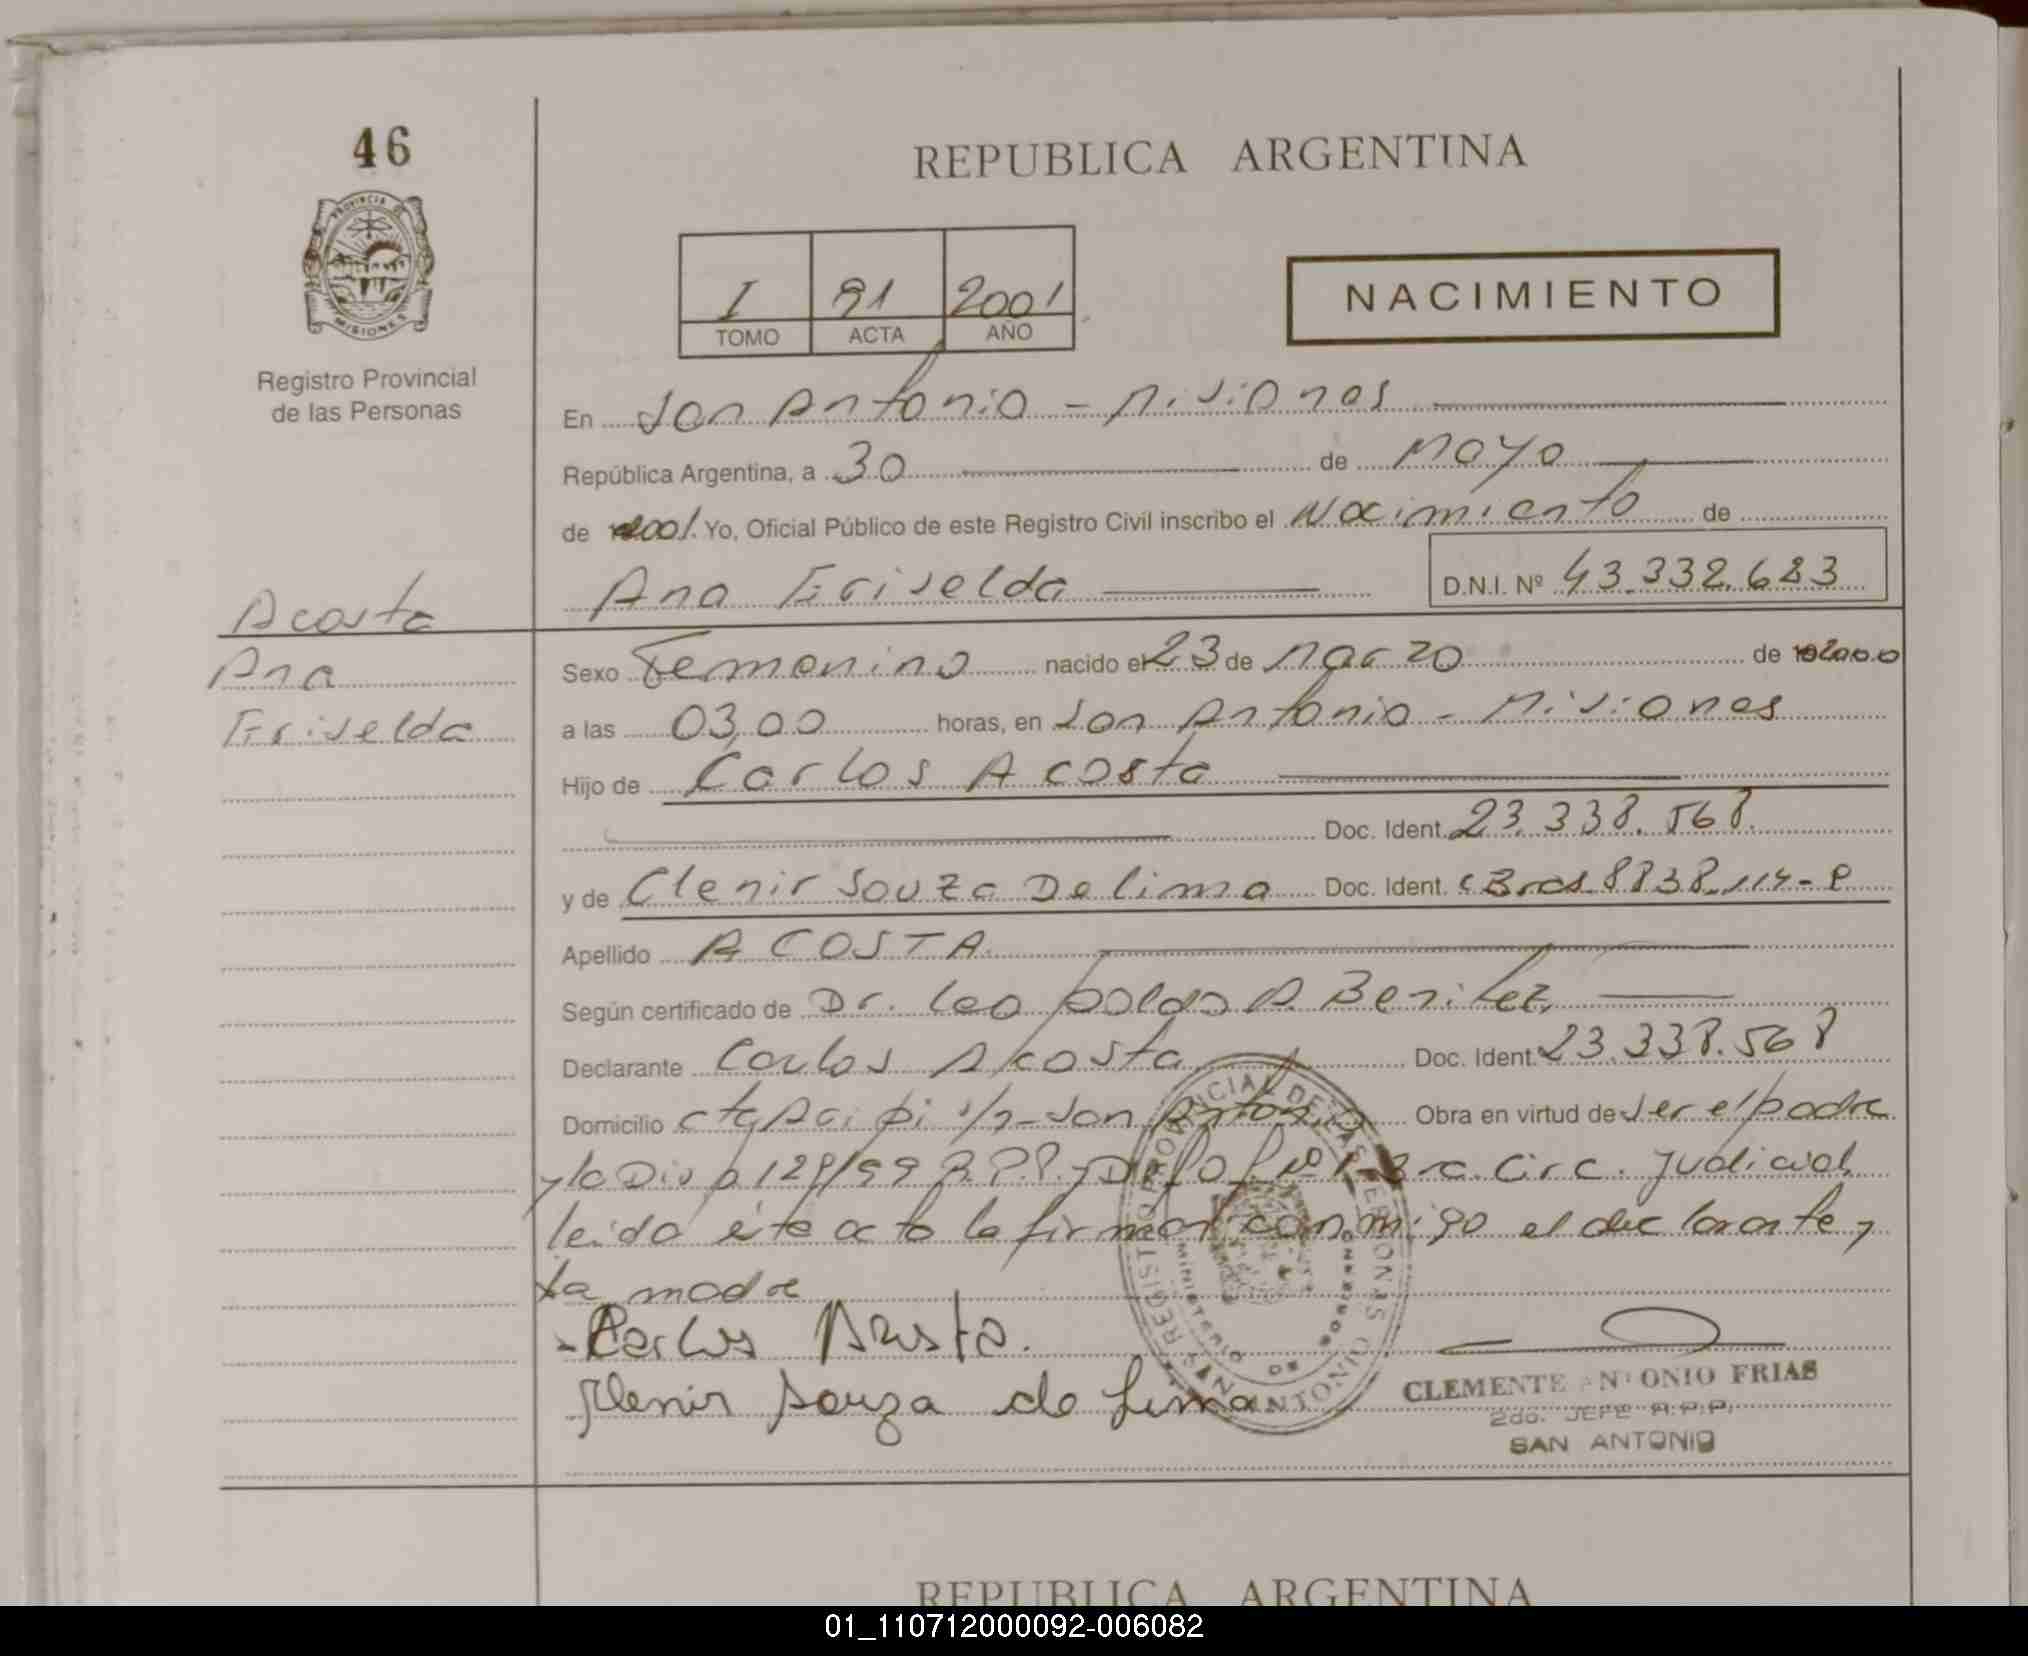 46
REPUBLICA ARGENTINA
PROVINCIA DE
MISIONES
I 91 2001
TOMO ACTA AÑO
NACIMIENTO
Registro Provincial
de las Personas
En San Antonio - Misiones
República Argentina, a 30 de Mayo
de 2001. Yo, Oficial Público de este Registro Civil inscribo el Nacimiento de
Ana Griselda D.N.I. Nº 43.332.683
Acosta
Ana
Griselda
Sexo Femenino nacido el 23 de Marzo de 2000
a las 03,00 horas, en San Antonio - Misiones
Hijo de Carlos Acosta
Doc. Ident. 23.338.568.
y de Clenir Souza De lima Doc. Ident. 8838.114-
Apellido ACOSTA
Según certificado de Dr. Leopoldo A. Benitez
Declarante Carlos Acosta Doc. Ident. 23.338.568
Domicilio San Antonio Obra en virtud de ser el padre
y la 128/99 Circ. Judicial
leida éste acto la firman conmigo el declarante y
la madre
Carlos Acosta.
Clenir Souza de Lima
REGISTRO PROVINCIAL DE LAS PERSONAS
MINISTERIO DE GOBIERNO
SAN ANTONIO
CLEMENTE ANTONIO FRIAS
2do. JEFE R.P.P.
SAN ANTONIO
REPUBLICA ARGENTINA
01_110712000092-006082